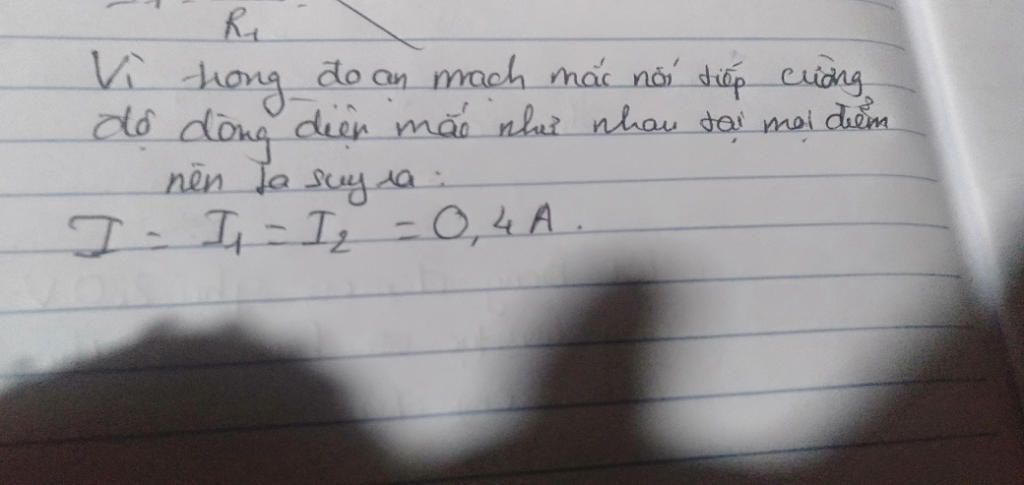 R₁
Vì trong đoạn mạch mắc nối tiếp cường
độ dòng điện mắc như nhau tại mọi điểm
nên ta suy ra:
I = I₁ = I₂ = 0,4A.